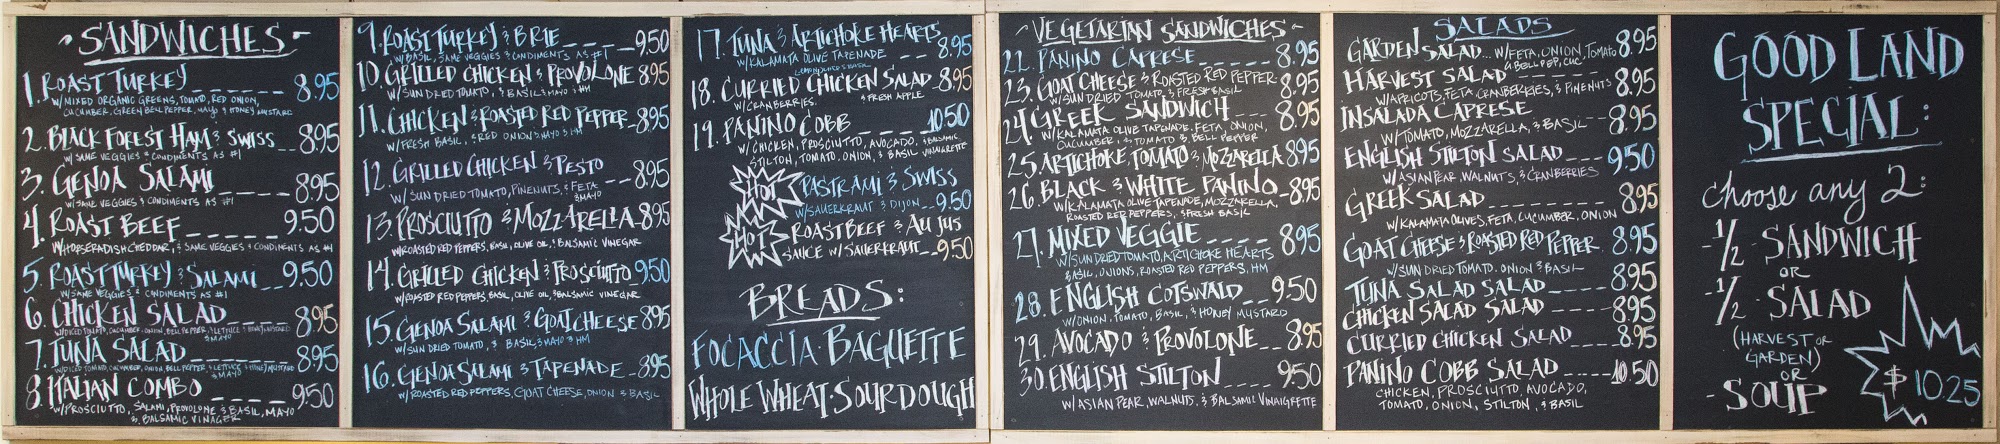 SANDWICHES
1. ROAST TURKEY 8.95
W/MIXED ORGANIC GREENS, TOMATO, RED ONION,
CUCUMBER, GREEN BELL PEPPER, MAYO & HONEY MUSTARD
2. BLACK FOREST HAM & SWISS 8.95
W/ SAME VEGGIES & CONDIMENTS AS #1
3. GENOA SALAMI 8.95
W/ SAME VEGGIES & CONDIMENTS AS #1
4. ROAST BEEF 9.50
W/HORSERADISH CHEDDAR, & SAME VEGGIES & CONDIMENTS AS #1
5. ROAST TURKEY & SALAMI 9.50
W/ SAME VEGGIES & CONDIMENTS AS #1
6. CHICKEN SALAD 8.95
W/DICED TOMATO, CUCUMBER, ONION, BELL PEPPER, & LETTUCE & HONEY MUSTARD
& MAYO
7. TUNA SALAD 8.95
W/DICED TOMATO, CUCUMBER, ONION, BELL PEPPER, & LETTUCE & HONEY MUSTARD
& MAYO
8. ITALIAN COMBO 9.50
W/PROSCIUTTO, SALAMI, PROVOLONE & BASIL, MAYO
& BALSAMIC VINAGER
9. ROAST TURKEY & BRIE 9.50
W/ BASIL, SAME VEGGIES & CONDIMENTS AS #1
10. GRILLED CHICKEN & PROVOLONE 8.95
W/ SUN DRIED TOMATO, & BASIL & MAYO & HM
11. CHICKEN & ROASTED RED PEPPER 8.95
W/ FRESH BASIL, & RED ONION & MAYO & HM
12. GRILLED CHICKEN & PESTO 8.95
W/ SUN DRIED TOMATO, PINENUTS, & FETA
& MAYO
13. PROSCIUTTO & MOZZARELLA 8.95
W/ROASTED RED PEPPERS, BASIL, OLIVE OIL, & BALSAMIC VINEGAR
14. GRILLED CHICKEN & PROSCIUTTO 9.50
W/ROASTED RED PEPPERS, BASIL, OLIVE OIL, & BALSAMIC VINEGAR
15. GENOA SALAMI & GOAT CHEESE 8.95
W/ SUN DRIED TOMATO, & BASIL & MAYO & HM
16. GENOA SALAMI & TAPENADE 8.95
W/ ROASTED RED PEPPERS, GOAT CHEESE, ONION & BASIL
17. TUNA & ARTICHOKE HEARTS 8.95
W/ KALAMATA OLIVE TAPENADE
18. CURRIED CHICKEN SALAD 8.95
W/CRANBERRIES & FRESH APPLE
19. PANINO COBB 10.50
W/ CHICKEN, PROSCIUTTO, AVOCADO, & BALSAMIC
STILTON, TOMATO, ONION, & BASIL VINAIGRETTE
HOT PASTRAMI & SWISS
W/SAUERKRAUT & DIJON 9.50
HOT ROAST BEEF & AU JUS
SAUCE W/ SAUERKRAUT 9.50
BREADS:
FOCACCIA · BAGUETTE
WHOLE WHEAT · SOURDOUGH
VEGETARIAN SANDWICHES
22. PANINO CAPRESE 8.95
23. GOAT CHEESE & ROASTED RED PEPPER 8.95
W/ SUN DRIED TOMATO & FRESH BASIL
24. GREEK SANDWICH 8.95
W/ KALAMATA OLIVE TAPENADE, FETA, ONION,
CUCUMBER, & TOMATO & BELL PEPPER
25. ARTICHOKE TOMATO & MOZZARELLA 8.95
26. BLACK & WHITE PANINO 8.95
W/ KALAMATA OLIVE TAPENADE, MOZZARELLA,
ROASTED RED PEPPERS, & FRESH BASIL
27. MIXED VEGGIE 8.95
W/ SUN DRIED TOMATO, ARTICHOKE HEARTS
BASIL, ONIONS, ROASTED RED PEPPERS, HM
28. ENGLISH COTSWALD 9.50
W/ ONION, TOMATO, BASIL, & HONEY MUSTARD
29. AVOCADO & PROVOLONE 8.95
30. ENGLISH STILTON 9.50
W/ ASIAN PEAR, WALNUTS, & BALSAMIC VINAIGRETTE
SALADS
GARDEN SALAD... W/ FETA, ONION, TOMATO 8.95
& BELL PEP, CUC
HARVEST SALAD 8.95
W/APRICOTS, FETA, CRANBERRIES, & PINENUTS
INSALADA CAPRESE 8.95
W/ TOMATO, MOZZARELLA, & BASIL
ENGLISH STILTON SALAD 9.50
W/ ASIAN PEAR, WALNUTS, & CRANBERRIES
GREEK SALAD 8.95
W/KALAMATA OLIVES, FETA, CUCUMBER, ONION
GOAT CHEESE & ROASTED RED PEPPER 8.95
W/ SUN DRIED TOMATO, ONION & BASIL
TUNA SALAD SALAD 8.95
CHICKEN SALAD SALAD 8.95
CURRIED CHICKEN SALAD 8.95
PANINO COBB SALAD 10.50
CHICKEN, PROSCIUTTO, AVOCADO,
TOMATO, ONION, STILTON, & BASIL
GOOD LAND
SPECIAL:
choose any 2:
- 1/2 · SANDWICH
OR
- 1/2 · SALAD
(HARVEST OR
GARDEN)
OR
- SOUP
$ 10.25